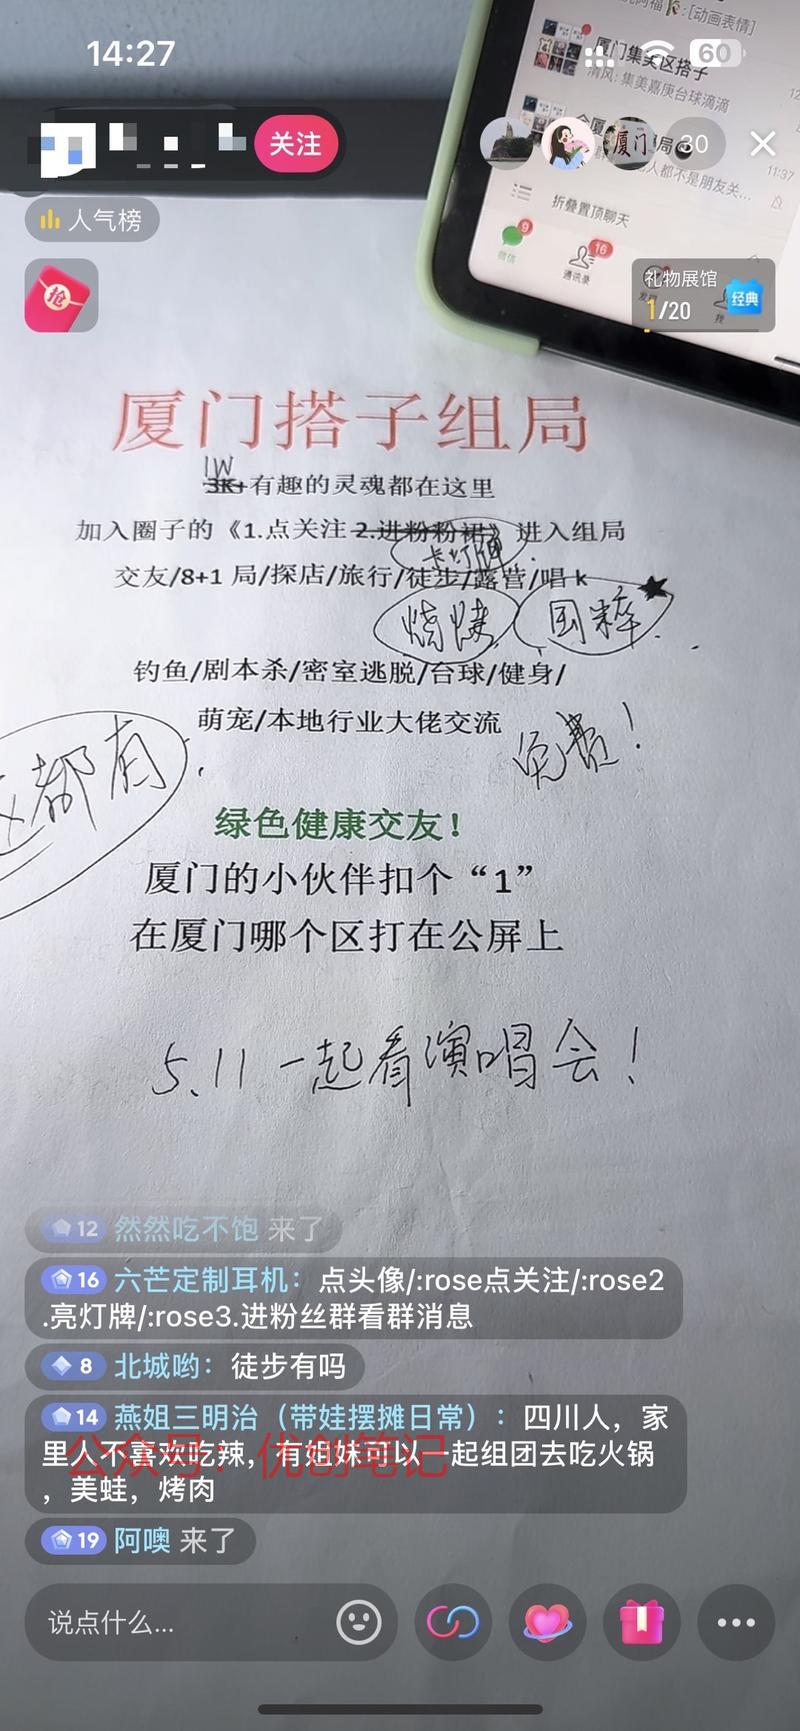 14:27
60
[动画表情]
厦门集美区搭子
清风: 集美嘉庚台球滴滴
关注
厦门
30
11:37
人都不是朋友关…
折叠置顶聊天
人气榜
抢
9
微信
16
通讯录
我
礼物展馆
1/20
经典
厦门搭子组局
1W
3K+有趣的灵魂都在这里
加入圈子的《1.点关注 2.进粉粉裙》 进入组局
卡灯牌
交友/8+1 局/探店/旅行/徒步/露营/唱 k
烧烤
国粹
钓鱼/剧本杀/密室逃脱/台球/健身/
萌宠/本地行业大佬交流
免费！
区都有
绿色健康交友！
厦门的小伙伴扣个“1”
在厦门哪个区打在公屏上
5.11 一起看演唱会！
12 然然吃不饱 来了
16 六芒定制耳机：点头像/:rose点关注/:rose2
.亮灯牌/:rose3.进粉丝群看群消息
8 北城哟：徒步有吗
14 燕姐三明治（带娃摆摊日常）：四川人，家
里人不喜欢吃辣，有姐妹可以一起组团去吃火锅
，美蛙，烤肉
公众号：优创笔记
19 阿噢 来了
说点什么...